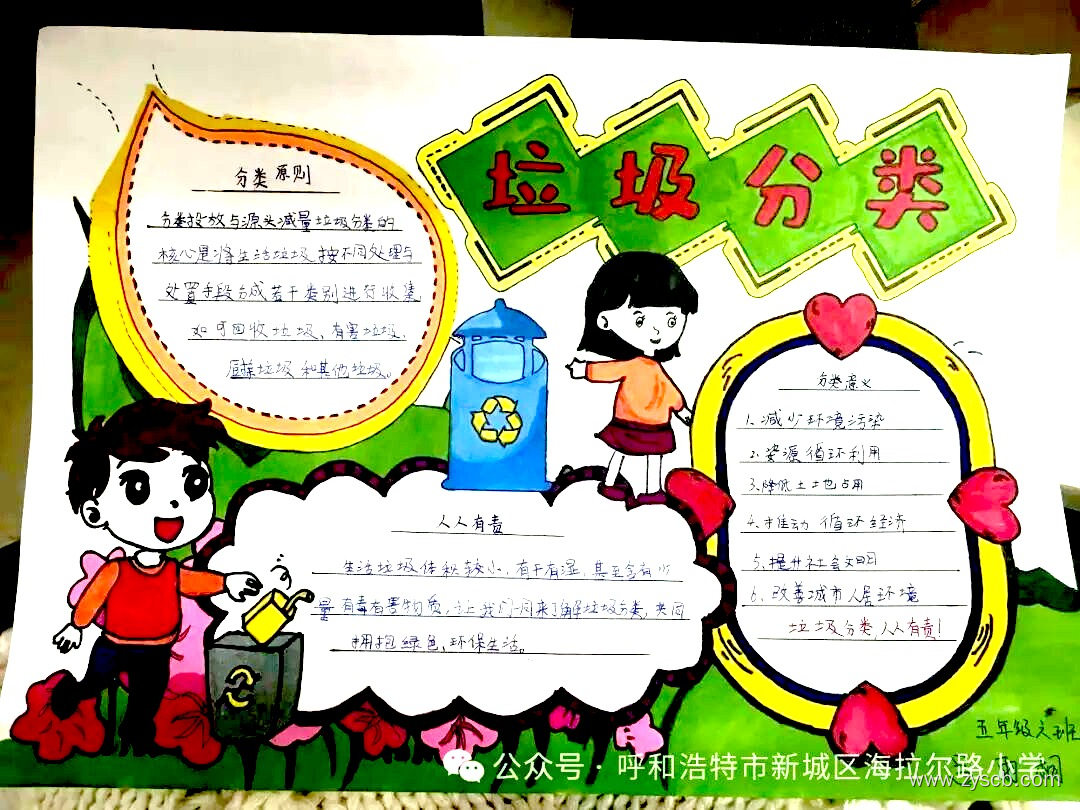 垃圾分类
分类原则
分类投放与源头减量垃圾分类的
核心是将生活垃圾按不同处理与
处置手段分成若干类别进行收集
如可回收垃圾、有害垃圾、
厨余垃圾和其他垃圾。
人人有责
生活垃圾体积较小,有干有湿,甚至含有少
量有毒有害物质,让我们一同来了解垃圾分类,共同
拥抱绿色,环保生活。
分类意义
1.减少环境污染
2.资源循环利用
3.降低土地占用
4.推动循环经济
5.提升社会文明
6.改善城市人居环境
垃圾分类,人人有责!
五年级六班
公众号·呼和浩特市新城区海拉尔路小学
www.zyscb.com